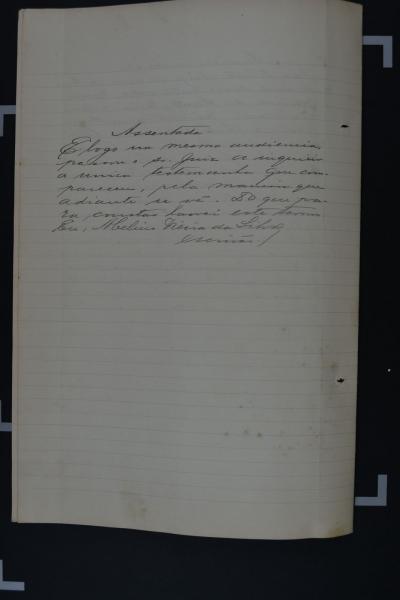 Assentada
E logo na mesma audiencia,
passou o sr. Juiz a inquirir
a unica testemunha que com-
pareceu, pela maneira que
adiante se vê. Do que pa-
ra constar lavrei este termo
Eu, Vieira da Silva
escrivão